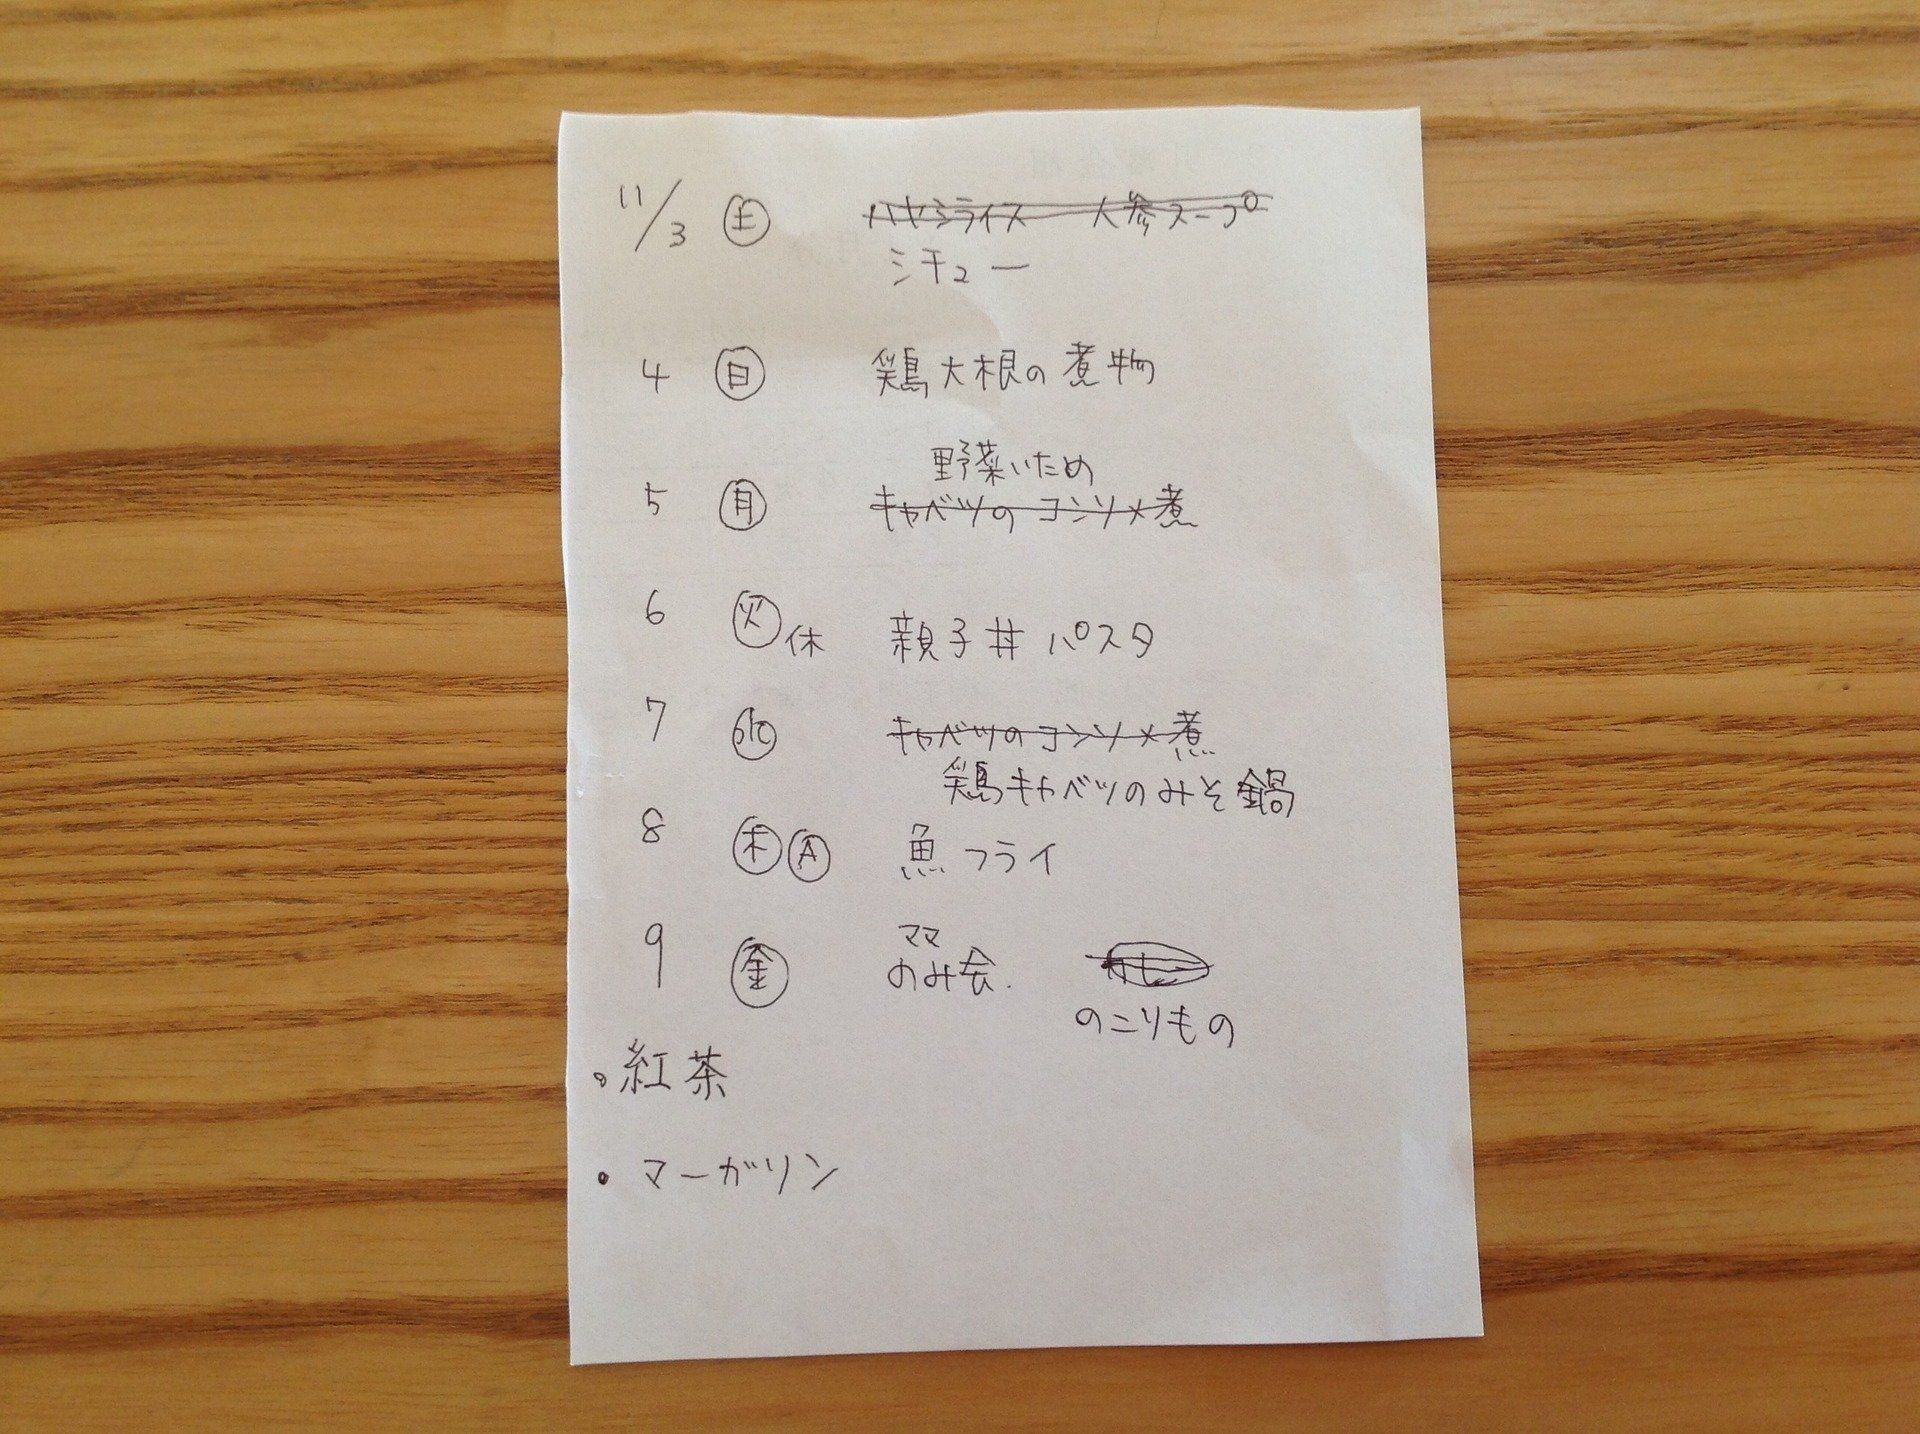 11/3 土 ハヤシライス 人参スープ
シチュー
4 日 鶏大根の煮物
野菜いため
5 月 キャベツのコンソメ煮
6 火 休 親子丼 パスタ
7 水 キャベツのコンソメ煮
鶏キャベツのみそ鍋
8 木 A 魚フライ
ママ
9 金 のみ会.
のこりもの
。紅茶
・マーガリン